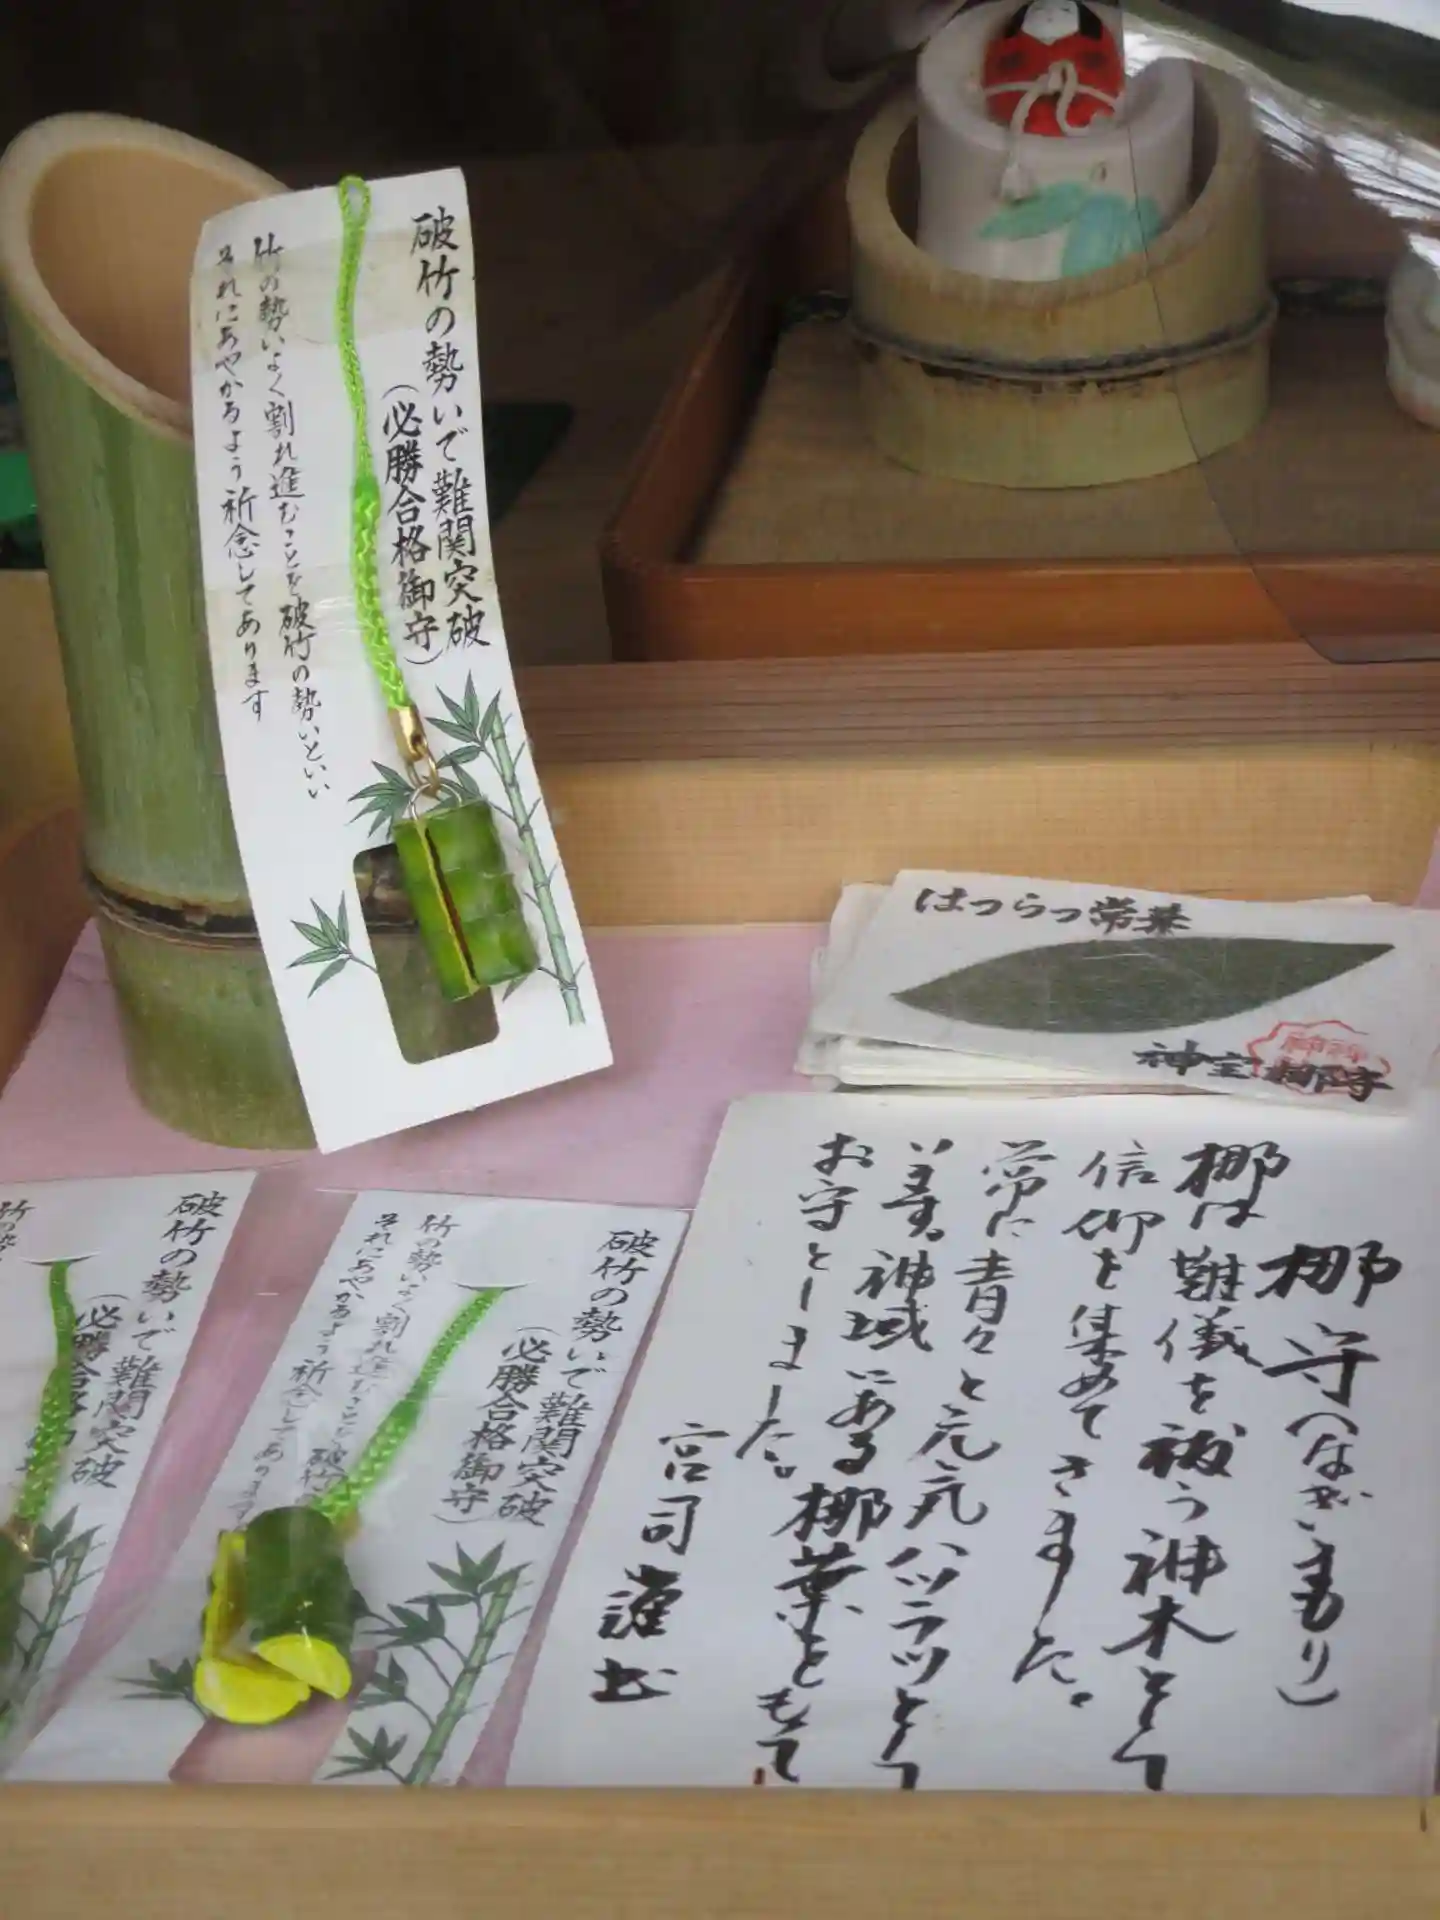 破竹の勢いで難関突破
(必勝合格御守)
竹の勢いよく割れ進むことを破竹の勢いといい
それにあやかるよう祈念してあります
はつらつ常葉
神宝 梛守
梛守(なぎまもり)
梛は難儀を祓う神木として
信仰を集めてきました。
常に青々と元気ハツラツとして
います。神域にある梛葉をもて
お守としました。
宮司 謹書
破竹の勢いで難関突破
(必勝合格御守)
竹の勢いよく割れ進むことを破竹
それにあやかるよう祈念してあります
破竹の勢いで難関突破
(必勝合格御守)
竹の勢